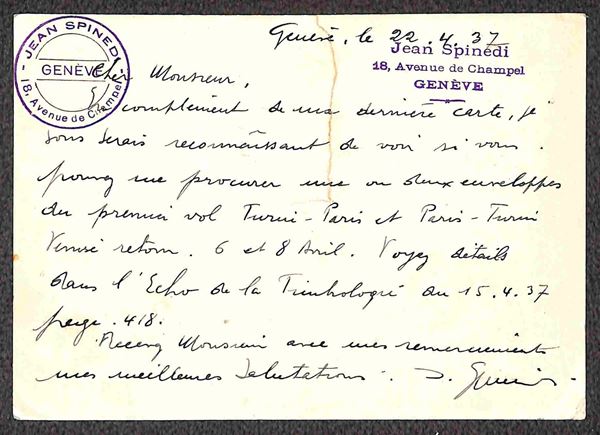 JEAN SPINEDI
GENÈVE
18, Avenue de Champel
Genève, le 22.4.37
Jean Spinedi
18, Avenue de Champel
GENÈVE
Cher Monsieur,
complément de ma dernière carte, je
vous serais reconnaissant de voir si vous
pouvez me procurer une ou deux enveloppes
du premier vol Turin-Paris et Paris-Turin
retour. 6 et 8 Avril. Voyez détails
dans l'Echo de la Timbrologie du 15.4.37
page. 418.
Recevez Monsieur avec mes remerciements
mes meilleures salutations. J.